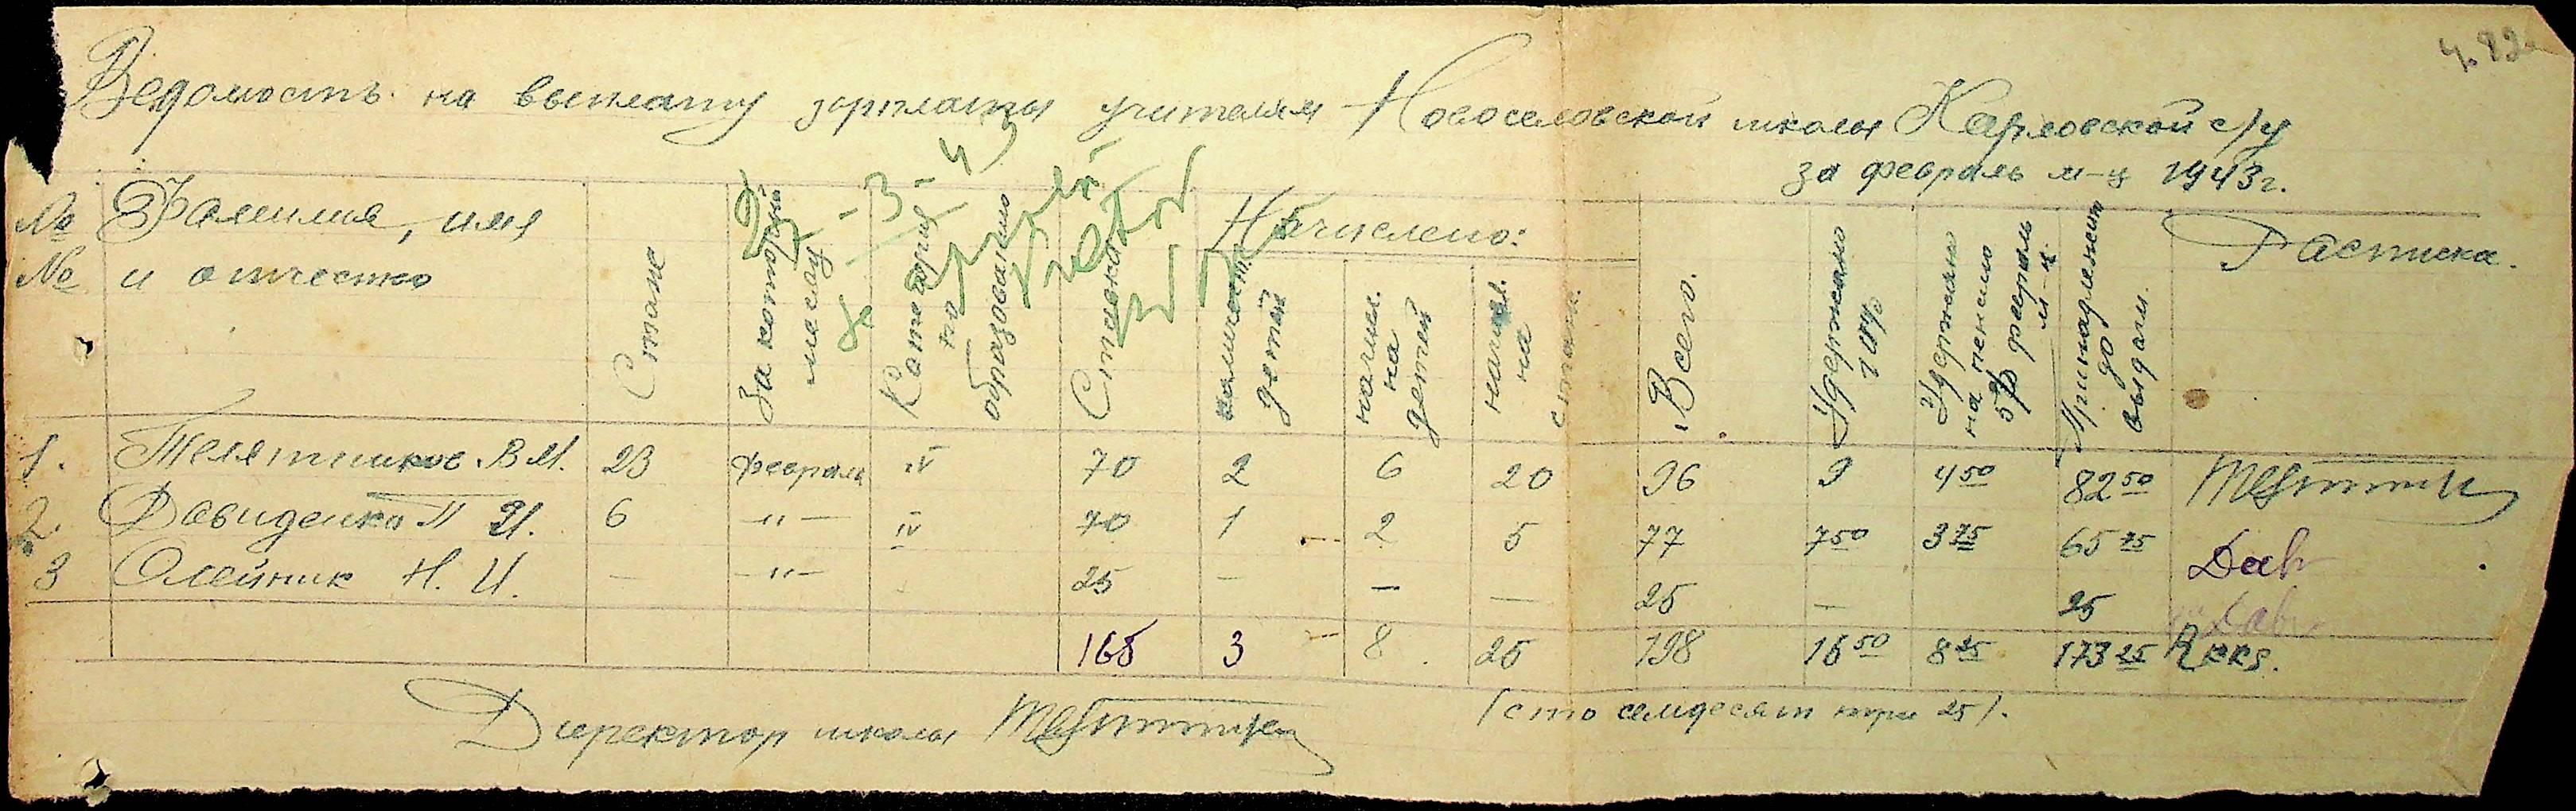 Ведомость на выплату зарплаты учителям Новоселовской школы Карловской с/у
за февраль м-ц 1943г.
№ №
Фамилия, имя
и отчество
Стаж
За который
месяц
Категория
по
образованию
Ставка
Начислено:
количест.
детей
начисл.
на
детей
начисл.
на
стаж.
Всего.
Удержано
10%
Удержано
на пенсию
5% февраль
м-ц
Принадлежит
до
выдачи.
Расписка.
1. Телятников В М. 23 февраль IV 70 2 6 20 96 9 4 50 82 50
2. Давиденко П И. 6 —"— IV 70 1 2 5 77 7 50 3 75 65 75 Дав
3 Олейник Н. И. — —"— 25 — — — 25 — 25 Дав
165 3 8 25 198 16 50 8 25 173 25 Rкs.
Директор школы
(сто семдесят три 25).